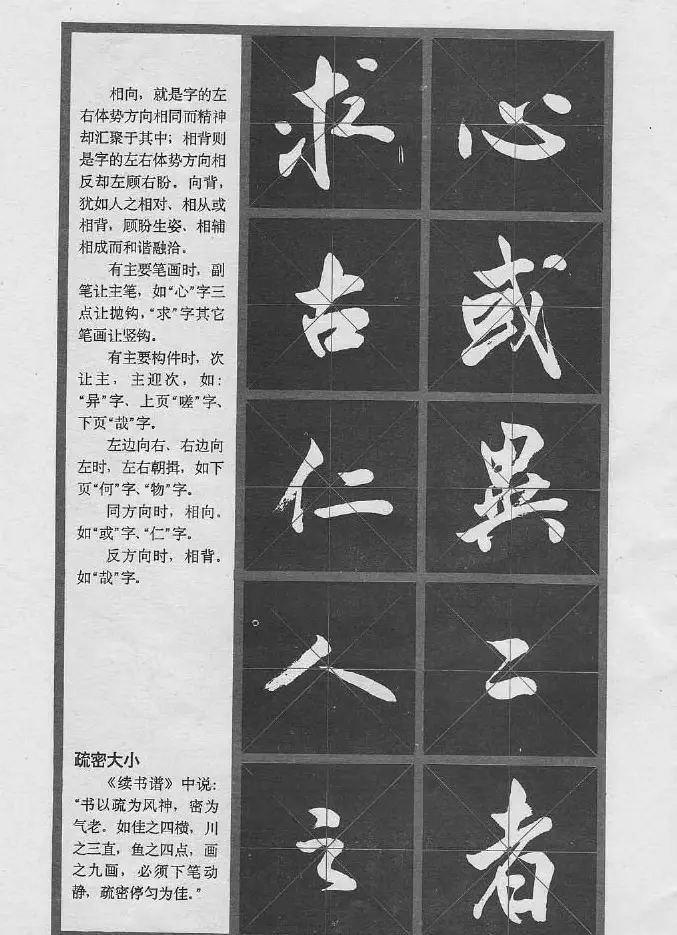 相向，就是字的左
右体势方向相同而精神
却汇聚于其中；相背则
是字的左右体势方向相
反却左顾右盼。向背，
犹如人之相对、相从或
相背，顾盼生姿、相辅
相成而和谐融洽。
有主要笔画时，副
笔让主笔，如“心”字三
点让抛钩，“求”字其它
笔画让竖钩。
有主要构件时，次
让主，主迎次，如：
“异”字、上页“嗟”字、
下页“哉”字。
左边向右、右边向
左时，左右朝揖，如下
页“何”字、“物”字。
同方向时，相向。
如“或”字、“仁”字。
反方向时，相背。
如“哉”字。
疏密大小
《续书谱》中说：
“书以疏为风神，密为
气老。如佳之四横，川
之三直，鱼之四点，画
之九画，必须下笔动
静，疏密停匀为佳。”
心
或
異
二
者
求
古
仁
人
之